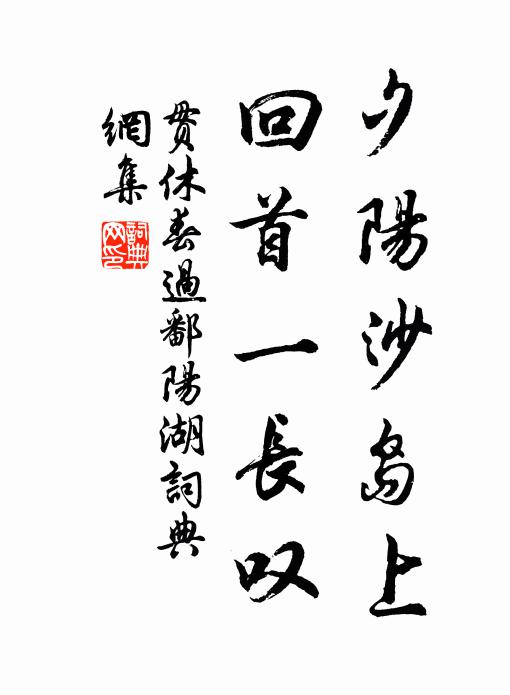 夕陽沙島上
回首一長叹
贯休春過鄱陽湖詞典
網集
詞典
网印